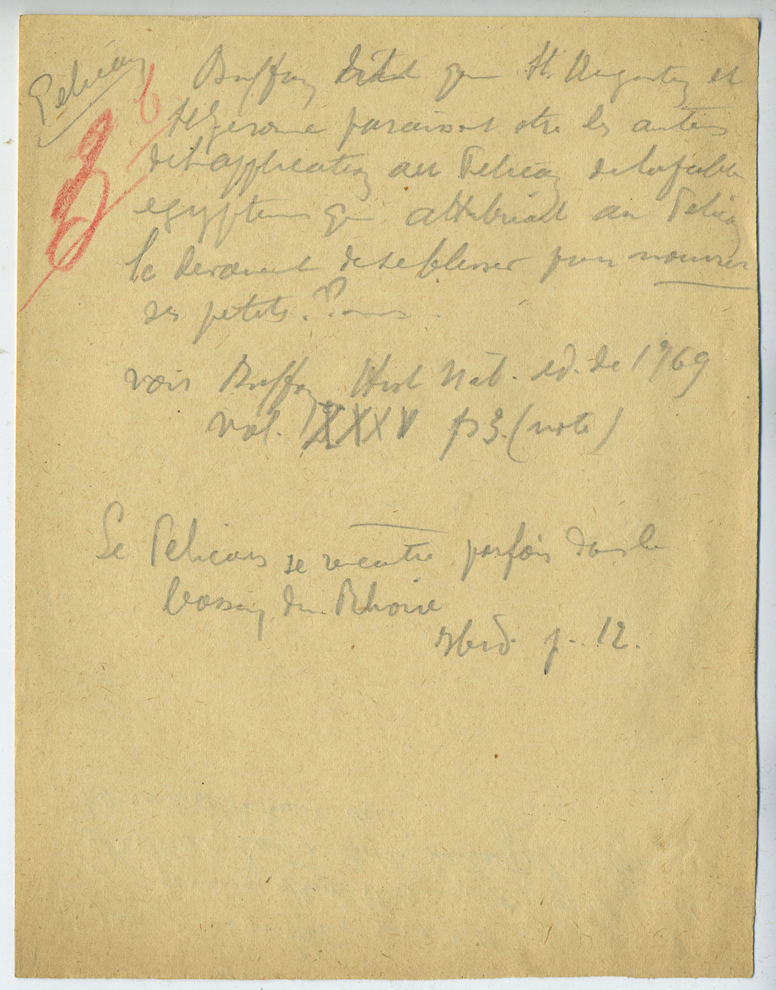 Pelican
6
Buffon dit que St. Augustin et
St Gerome paraissent etre les auteurs
de l'application au Pelican de la fable
egyptienne qui attribuait au Pelican
le devouement de se blesser pour nourrir
ses petits.
voir Buffon Hist Nat. ed. de 1769
vol. p 3. (note)
Le Pelican se rencontre parfois dans le
bassin du Rhone
Ibid p. 12.